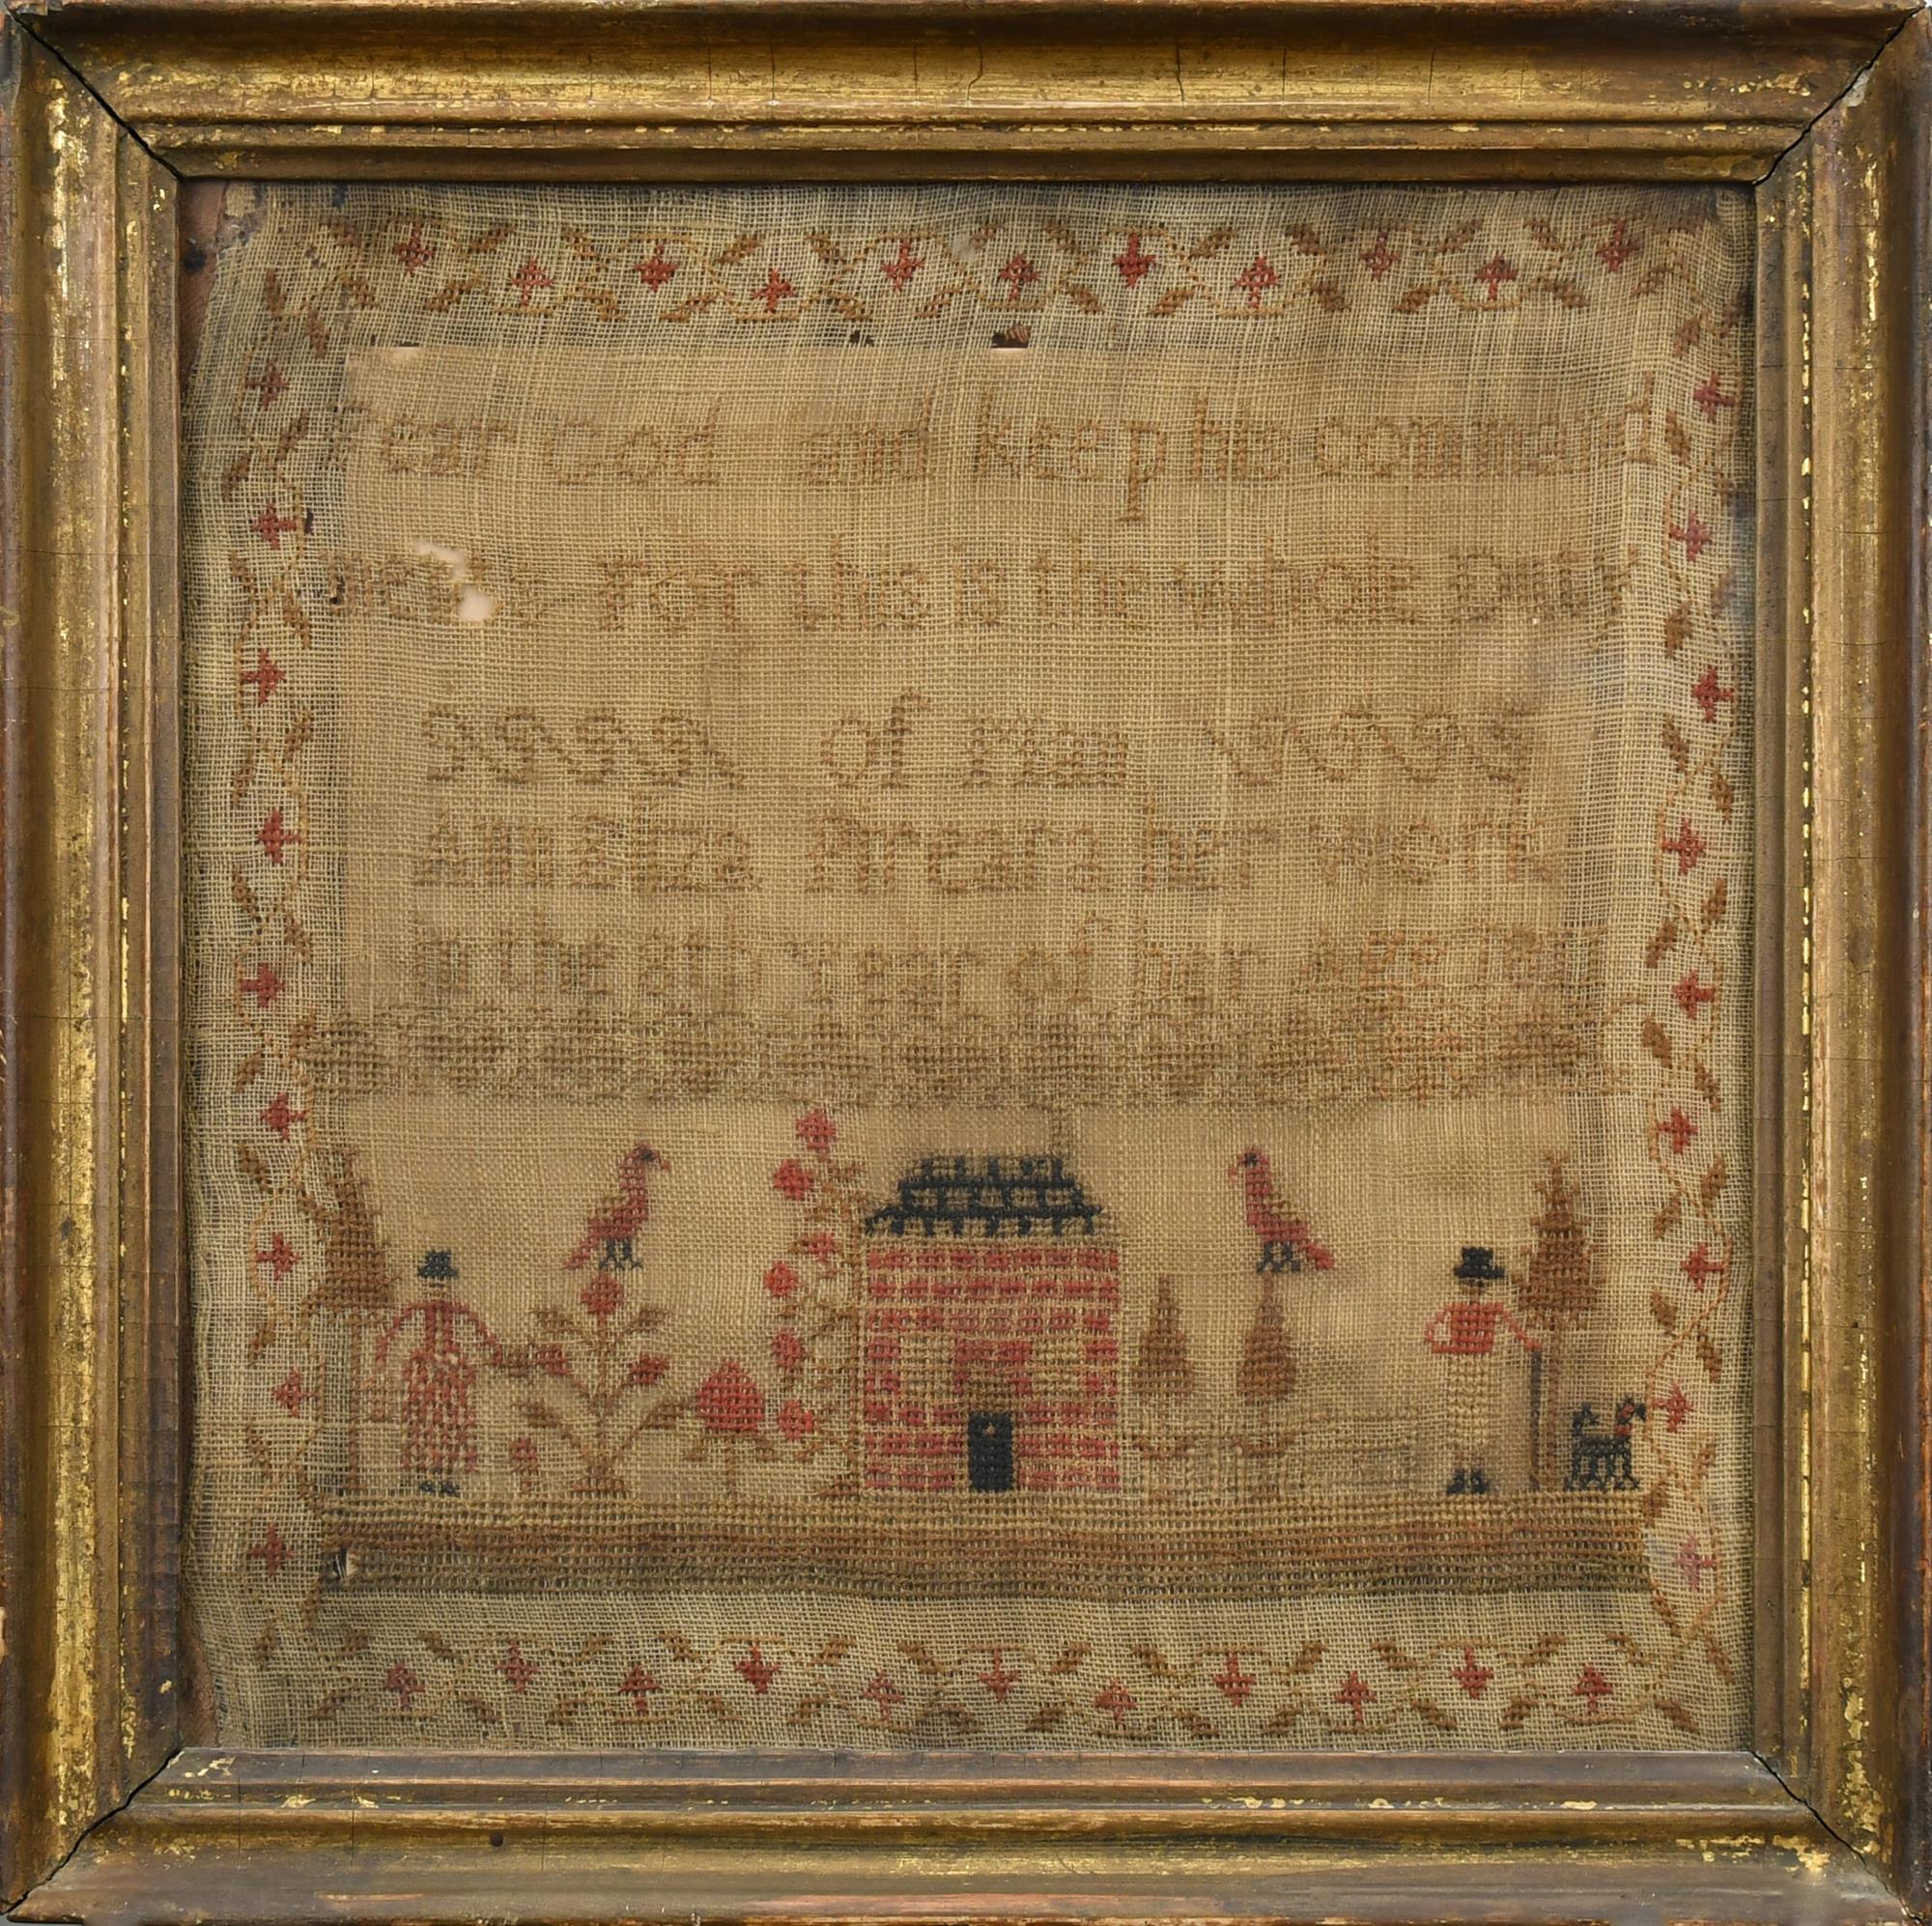 Fear God and keep his command
ments For this is the whole Duty
of man
Ann Eliza her work
in the 8th Year of her Age